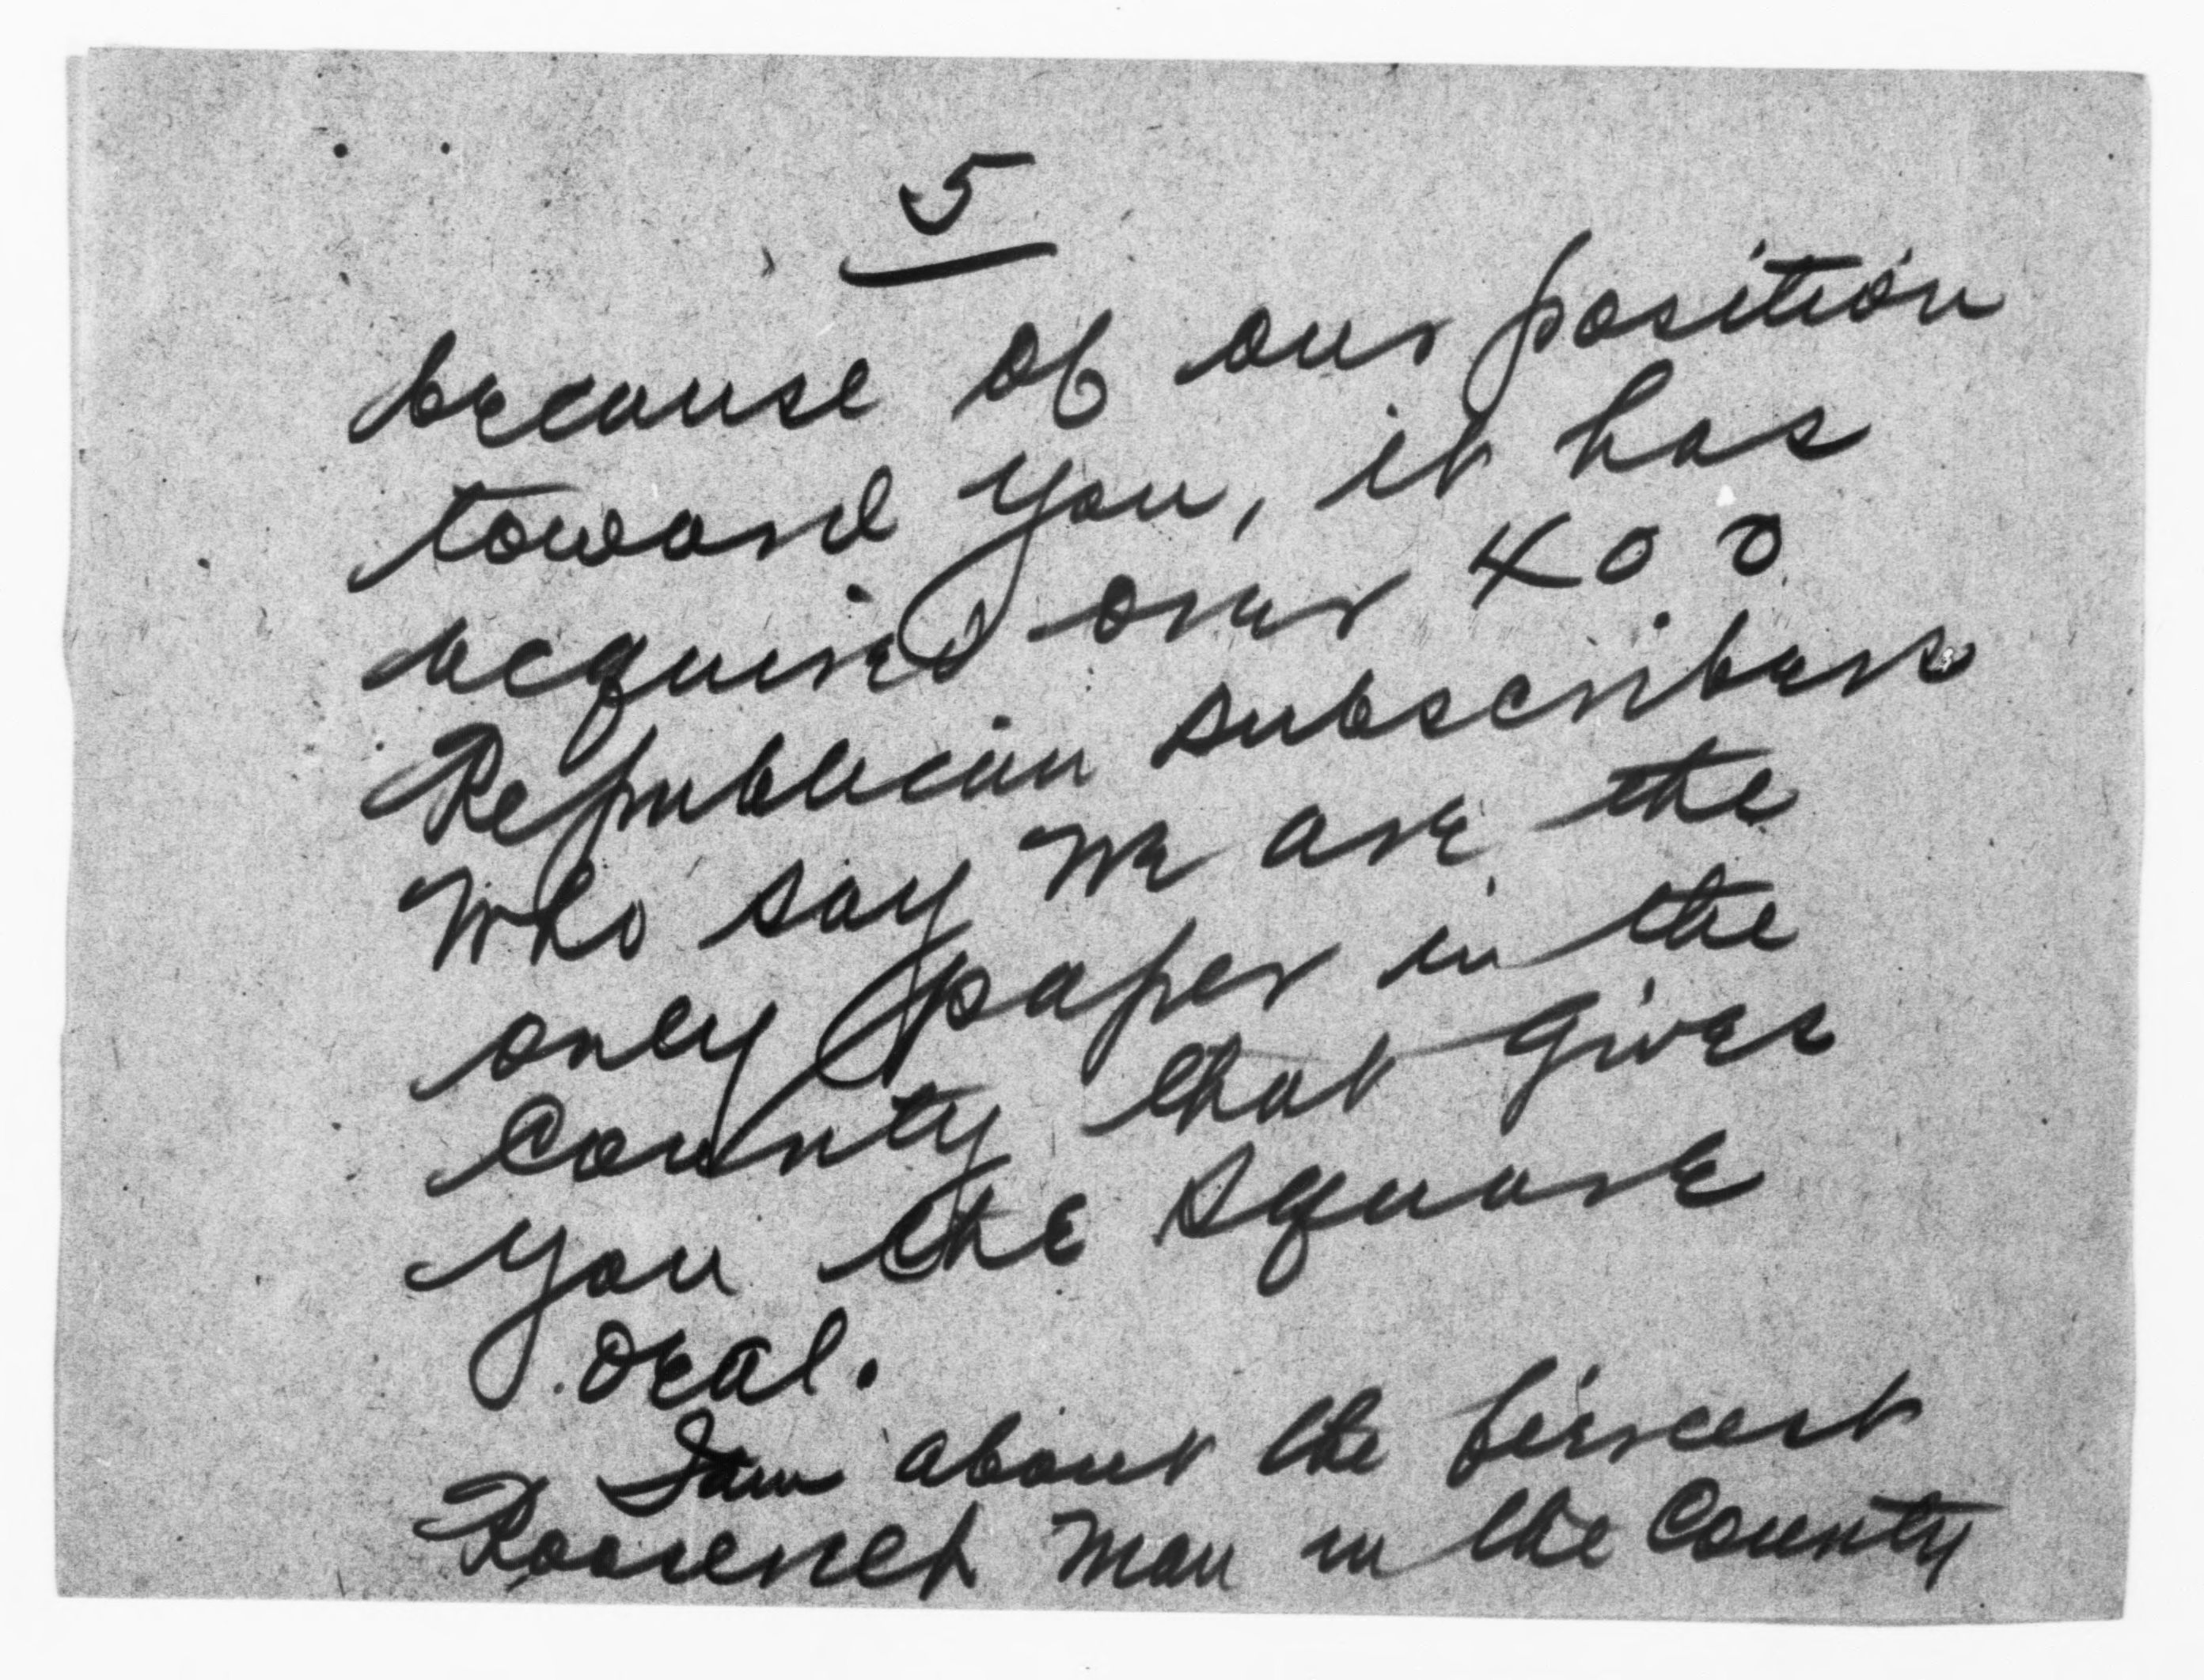 5
because of our position
toward you, it has
acquired over 400
Republican subscribers
who say we are the
only paper in the
County that gives
you the square
deal.
I am about the fiercest
Roosevelt man in the County